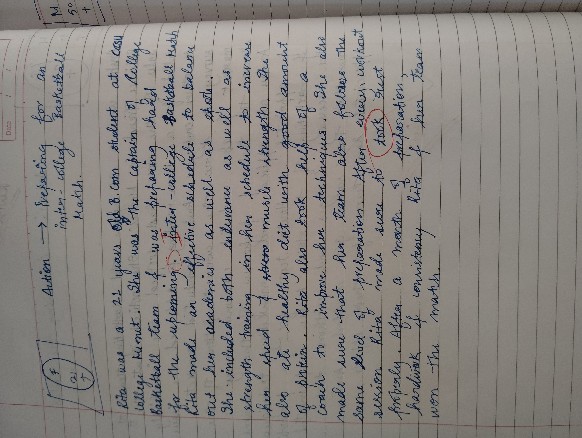 Action → Preparing for an
inter-college Basketball
Match.
F
21
+
Rita was a 21 years old B.Com student at
college Meerut. She was the captain of College
Basketball team & was preparing hard
for the upcoming Inter-college Basketball Match
Rita made an effective schedule to balance
out her academics as well as sports.
She included both endurance as well as
strength training in her schedule to increase
her speed & muscle strength. She
also ate healthy diet with good amount
of protein. Rita also took help of a
coach to improve her techniques. She also
made sure that her team also follows the
same level of preparation. After every workout
session Rita made sure to took rest
properly. After a month of preparation,
hardwork & consistency Rita & her team
won the match.